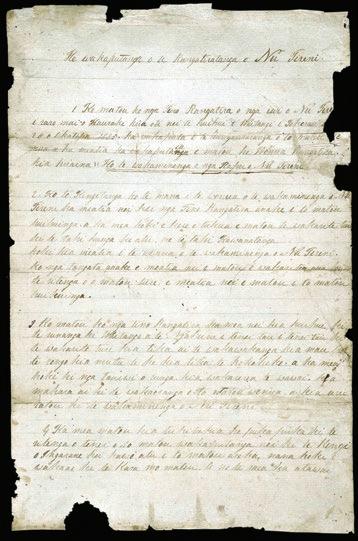 He wakaputanga o te Rangatiratanga o Nu Tireni
1 Ko matou ko nga Tino Rangatira o nga iwi o Nu Tireni
i raro mai o Hauraki kua oti nei te huihui i Waitangi i Tokerau
ka wakaputa i te Rangatiratanga o to matou
wenua a ka meatia ka wakaputaia e matou he Wenua Rangatira
kia huaina Ko te wakaminenga o nga Hapu o Nu Tireni
2 Ko te Kingitanga ko te mana i te wenua o te wakaminenga o Nu
Tireni ka meatia nei kei nga Tino Rangatira anake i to matou
huihuinga, a ka mea hoki e kore e tukua e matou te wakarite ture
ki te tahi hunga ke atu, me te tahi Kawanatanga
hoki kia meatia i te wenua o te wakaminenga o Nu Tireni
ko nga tangata anake e meatia nei e matou e wakarite ana ki
te ritenga o o matou ture e meatia nei e matou i to matou
huihuinga
3 Ko matou ko nga tino Rangatira ka mea nei kia huihui ki
te runanga ki Waitangi a te Ngahuru i tenei tau i tenei tau
te wakarite ture kia tika ai te wakawakanga kia mau
te rongo kia mutu te he kia tika te hokohoko a ka mea
hoki ki nga tauiwi o runga kia wakarerea te wawai kia
mahara ai ki te wakaoranga o to matou wenua a kia uru
ratou ki te wakaminenga o Nu Tireni
4 Ka mea matou kia tuhituhia he pukapuka ki te
ritenga o tenei o to matou wakaputanga nei ki te Kingi
o Ingarani hei kawe atu i to matou aroha nana hoki i
wakaae ki te Kara mo matou